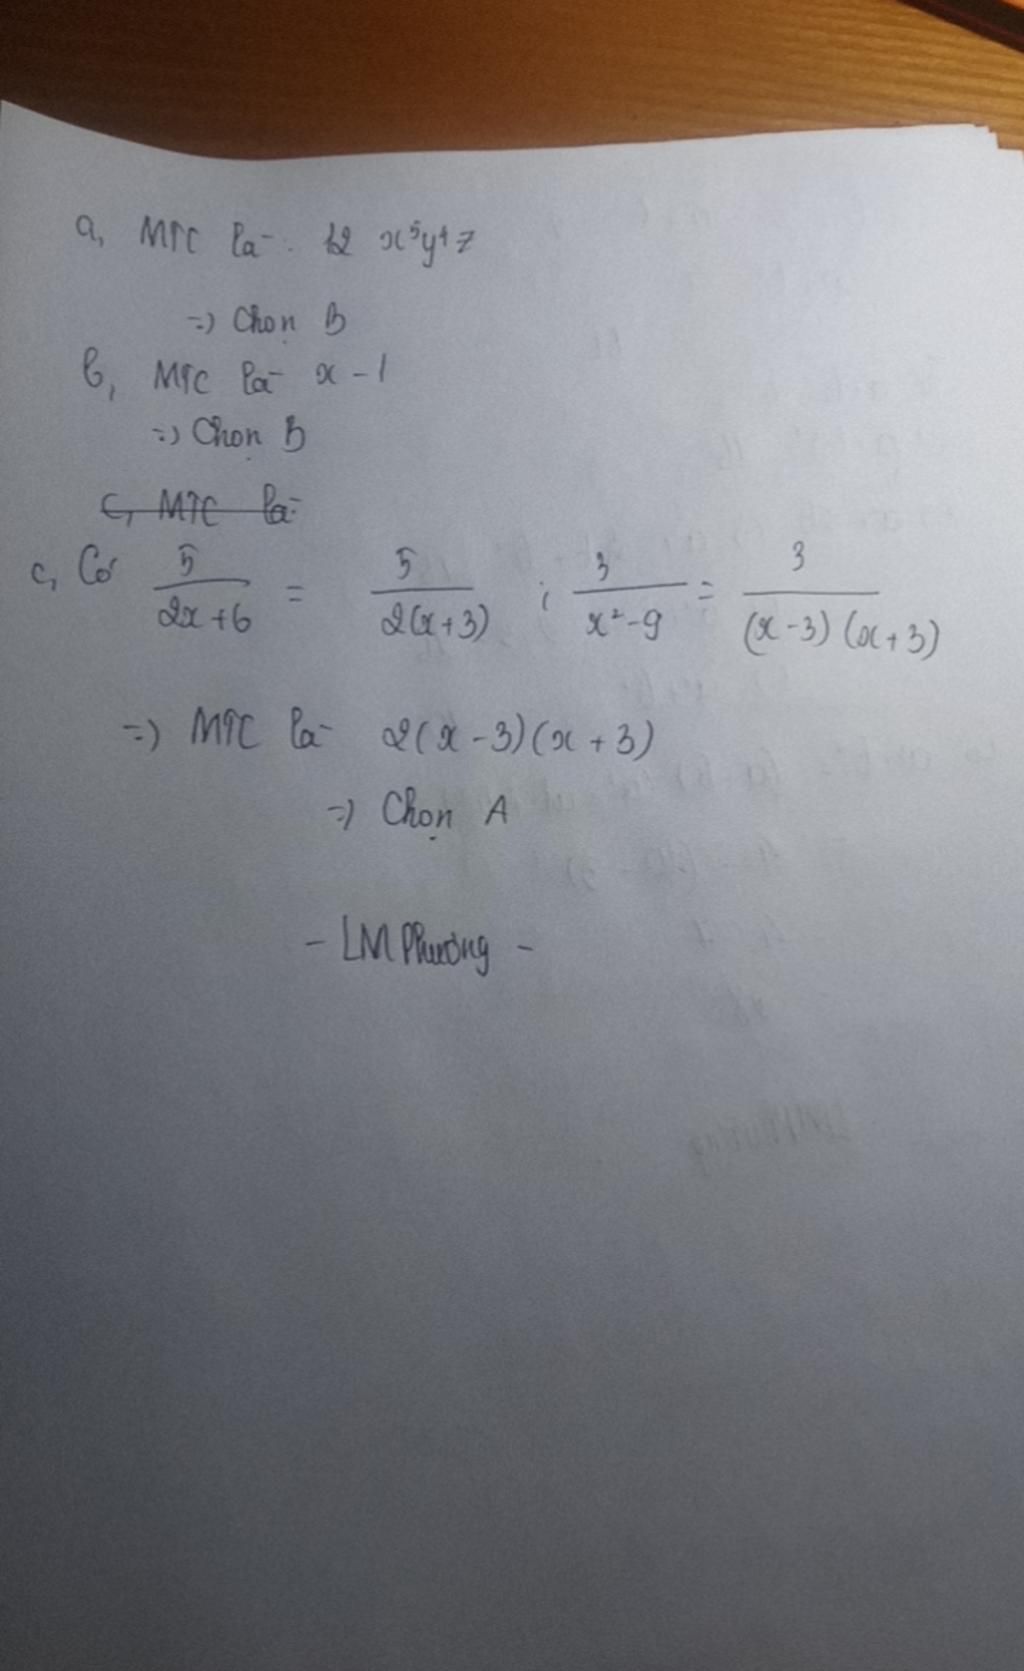 a, MTC là: 12 x⁵y⁴z
=) Chọn B
b, MTC là x - 1
=) Chọn B
c, MTC là
c, Có 5/(2x+6) = 5/(2(x+3)) ; 3/(x²-9) = 3/((x-3)(x+3))
=) MTC là 2(x-3)(x+3)
=) Chọn A
- LMPhương -